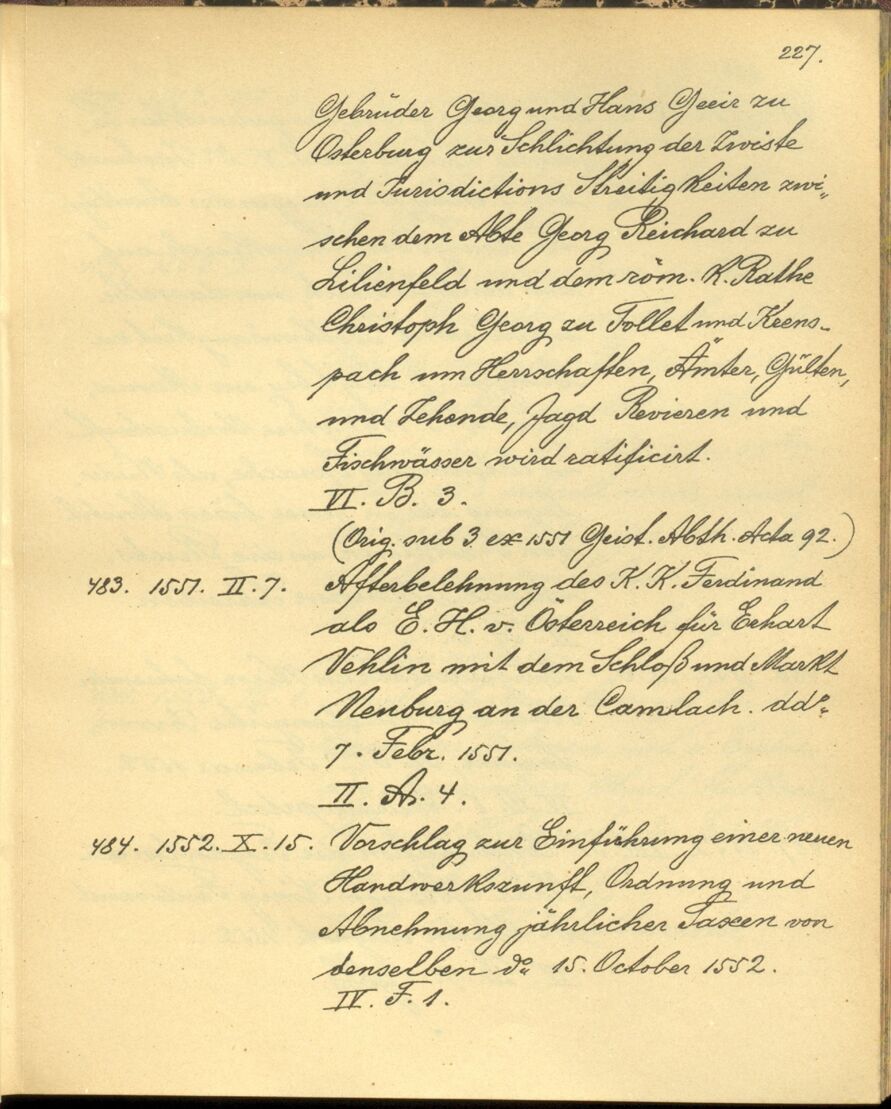 227.
Gebrüder Georg und Hans Geeir zu
Osterburg zur Schlichtung der Zwiste
und Jurisdictions Streitigkeiten zwi„
schen dem Abte Georg Reichard zu
Lilienfeld und dem röm. K. Rathe
Christoph Georg zu Tollet und Krens-
pach um Herrschaften, Ämter, Gülten,
und Zehende, Jagd Revieren und
Fischwässer wird ratificirt.
VI. B. 3.
(Orig. sub 3 ex 1551 Geist. Abth. Acta 92.)
483. 1551. II. 7. Afterbelehnung des K. K. Ferdinand
als E. H. v. Österreich für Erhart
Vehlin mit dem Schloß und Markt
Neuburg an der Camlach. ddo
7. Febr. 1551.
II. A. 4.
484. 1552. X. 15. Vorschlag zur Einführung einer neuen
Handwerkszunft, Ordnung und
Abnehmung jährlicher Taxen von
denselben do 15. October 1552.
IV. F. 1.